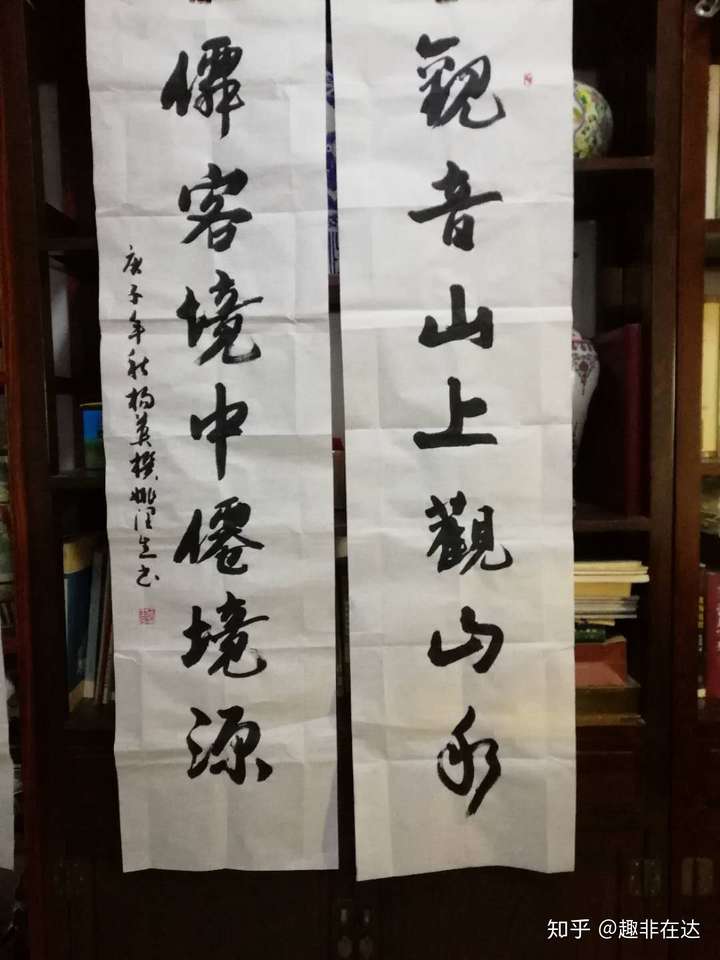 觀音山上觀山水
僊客境中僊境源
庚子年秋杨英撰姚润生书
知乎 @趣非在达